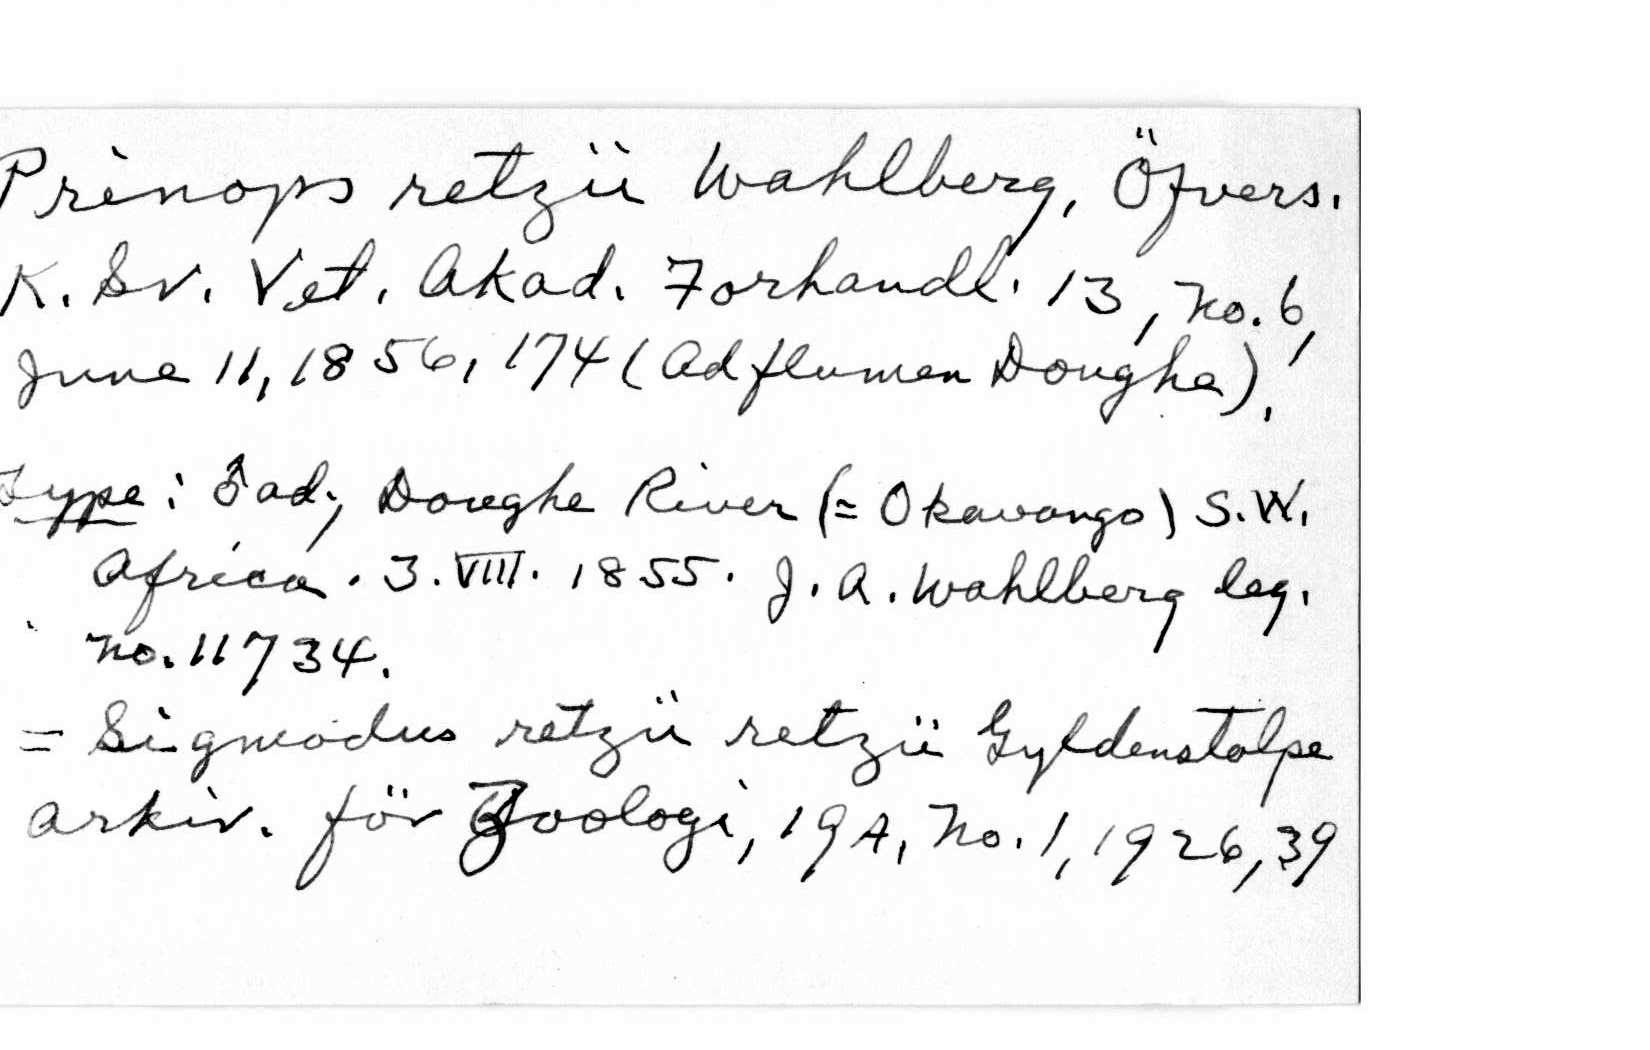 Prinops retzii Wahlberg, Öfvers.
K. Sv. Vet. Akad. Forhandl. 13, No. 6,
June 11, 1856, 174 (Ad flumen Doughe).
Type: ♂ ad; Doughe River (= Okavango) S.W.
Africa. 3.VIII. 1855. J. A. Wahlberg leg.
No. 11734.
= Sigmodus retzii retzii Gyldenstolpe
Arkiv. för Zoologi, 19A, No. 1, 1926, 39